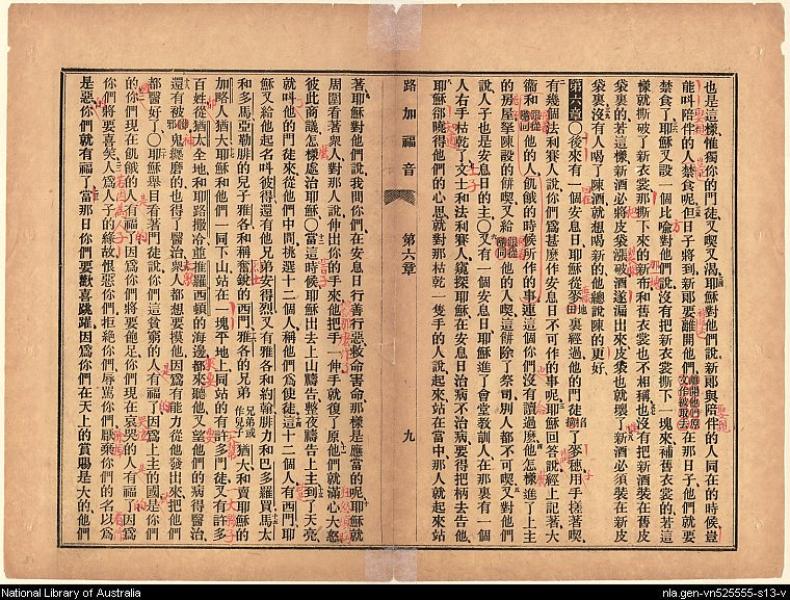 也是這樣惟獨你的門徒又喫又渴耶穌對他們說新郎與陪伴的人同在的時候豈
能叫陪伴的人禁食呢但日子將到新郎要離開他們在那日子他們就要
禁食了耶穌又設一個比喻對他們說沒有把新衣裳撕下一塊來補舊衣裳的若這
樣就撕破了新衣裳那撕下來的新布和舊衣裳也不相稱也沒有把新酒裝在舊皮
袋裏的若這樣新酒必將皮袋漲破酒遂漏出來皮袋也就壞了新酒必須裝在新皮
袋裏沒有人喝了陳酒就想喝新的他總說陳的更好
第六章○後來有一個安息日耶穌從麥田裏經過他的門徒掐了麥穗用手搓著喫
有幾個法利賽人說你們爲甚麼作安息日不可作的事呢耶穌回答說經上記著大
衛和他的人飢餓的時候所作的事連這個你們沒有讀過麼他怎樣進了上主
的房屋拏陳設的餅喫又給他的人喫這餅除了祭司別人都不可喫又對他們
說人子也是安息日的主○又有一個安息日耶穌進了會堂教訓人在那裏有一個
人右手枯乾了文士和法利賽人窺探耶穌在安息日治病不治病要得把柄去告他
耶穌卻曉得他們的心思就對那枯乾一隻手的人說起來站在當中那人就起來站
路加福音 第六章 九
著耶穌對他們說我問你們在安息日行善行惡救命害命那樣是應當的呢耶穌就
周圍看著衆人對那人說伸出你的手來他把手一伸手就復了原他們就滿心大怒
彼此商議怎樣處治耶穌○當這時候耶穌出去上山禱告整夜禱告上主到了天亮
就叫他的門徒來從他們中間挑選十二個人稱他們爲使徒這十二個人有西門耶
穌又給他起名叫彼得還有他兄弟安得烈又有雅各和約翰腓力和巴多羅買馬太
和多馬亞勒腓的兒子雅各和稱奮銳的西門雅各的兄弟猶大和賣耶穌的
加略人猶大耶穌和他們一同下山站在一塊平地上同站的有許多門徒又有許多
百姓從猶太全地和耶路撒冷並推羅西頓的海邊都來聽他又望他們的病得醫治
還有被鬼纏磨的也得了醫治衆人都想要摸他因爲有能力從他發出來把他們
都醫好了○耶穌舉目看著門徒說你們這貧窮的人有福了因爲上主的國是你們
的你們現在飢餓的人有福了因爲你們將要飽足你們現在哀哭的人有福了因爲
你們將要喜笑人爲人子的緣故恨惡你們拒絕你們辱罵你們厭棄你們的名以爲
是惡你們就有福了當那日你們要歡喜跳躍因爲你們在天上的賞賜是大的他們
National Library of Australia
nla.gen-vn525555-s13-v